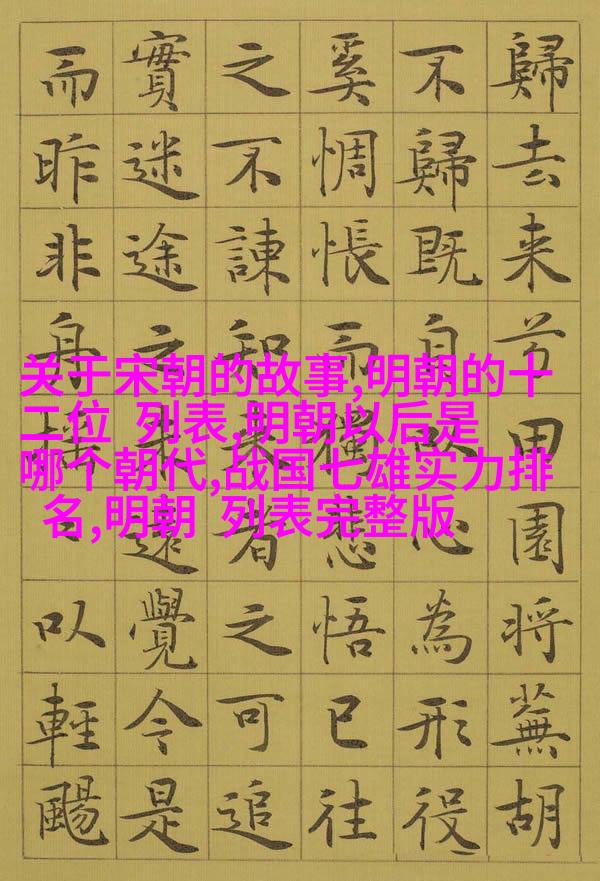 歸去来兮田園将蕪胡
不歸既自以心為形役
奚惆悵而獨悲悟已往
之不諫知来者之可追
實迷途遠覺今是
而昨非舟摇以輕颺
关于宋朝的故事,明朝的十
二位 列表,明朝以后是
哪个朝代,战国七雄实力排
名,明朝 列表完整版